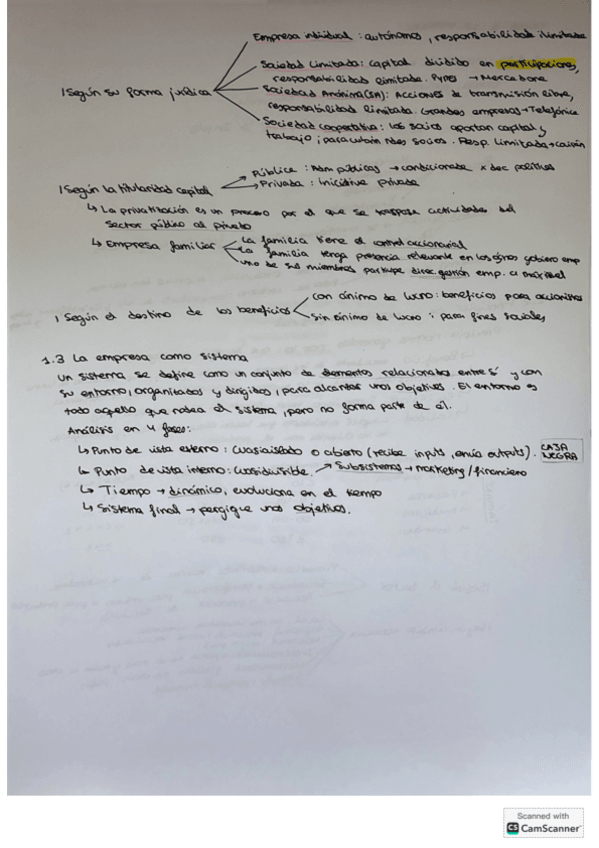 Empresa individual : autónomos, responsabilidad ilimitada
Sociedad Limitada: capital dividido en participaciones,
responsabilidad limitada. Pymes → Mercadona
| Según su forma jurídica
Sociedad Anónima (SA): Acciones de transmisión libre,
responsabilidad limitada. Grandes empresas → Telefónica
Sociedad cooperativa: los socios aportan capital y
trabajo ; socios. Resp. limitada →
Pública : Adm públicas → condicionada x dec políticas
| Según la titularidad capital
Privada : Iniciativa privada
↳ La privatización es un proceso por el que se traspasa actividades del
sector público al privado
↳ Empresa familiar
La familia tiene el control accionarial
La familia tenga presencia relevante en los gobierno emp
uno de sus miembros participe direc. gestión emp. a
con ánimo de lucro: beneficios para accionistas
| Según el destino de los beneficios
sin ánimo de lucro : para fines sociales
1.3 La empresa como sistema
Un sistema se define como un conjunto de elementos relacionados entre sí y con
su entorno, organizados y dirigidos, para alcanzar unos objetivos. El entorno es
todo aquello que rodea el sistema, pero no forma parte de él.
Análisis en 4 fases:
↳ Punto de vista externo : Cuasiaislado o abierto (recibe inputs, envía outputs). CAJA NEGRA
↳ Punto de vista interno: Cuasidivisible. → Subsistemas → marketing / financiero
↳ Tiempo → dinámico, evoluciona en el tiempo
↳ Sistema final → persigue unos objetivos.
Scanned with
CS CamScanner